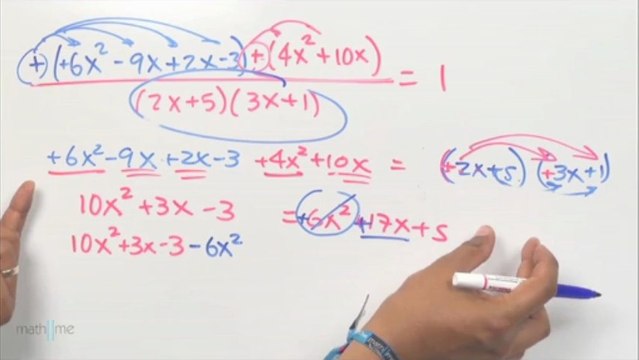 +(+6x² -9x+2x-3)+(4x²+10x)
(2x+5)(3x+1)
= 1
+6x²-9x+2x-3 +4x²+10x = (+2x+5)(+3x+1)
10x²+3x-3 =+6x²+17x+5
10x²+3x-3-6x²
math2me